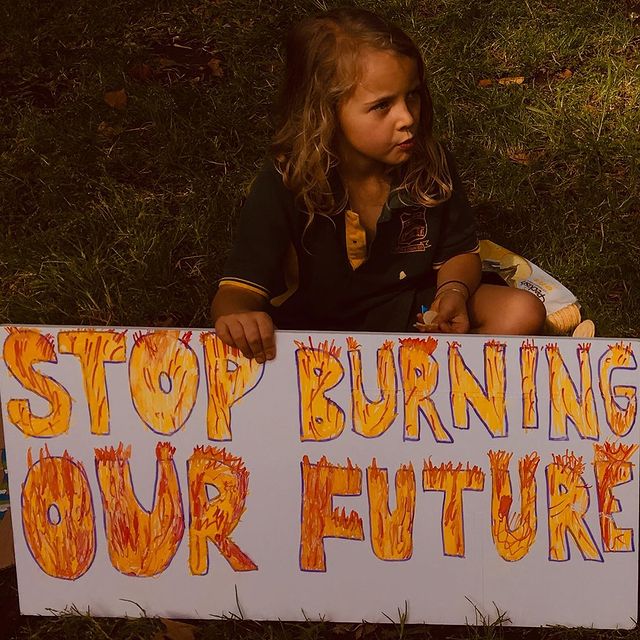 STOP BURNING
OUR FUTURE